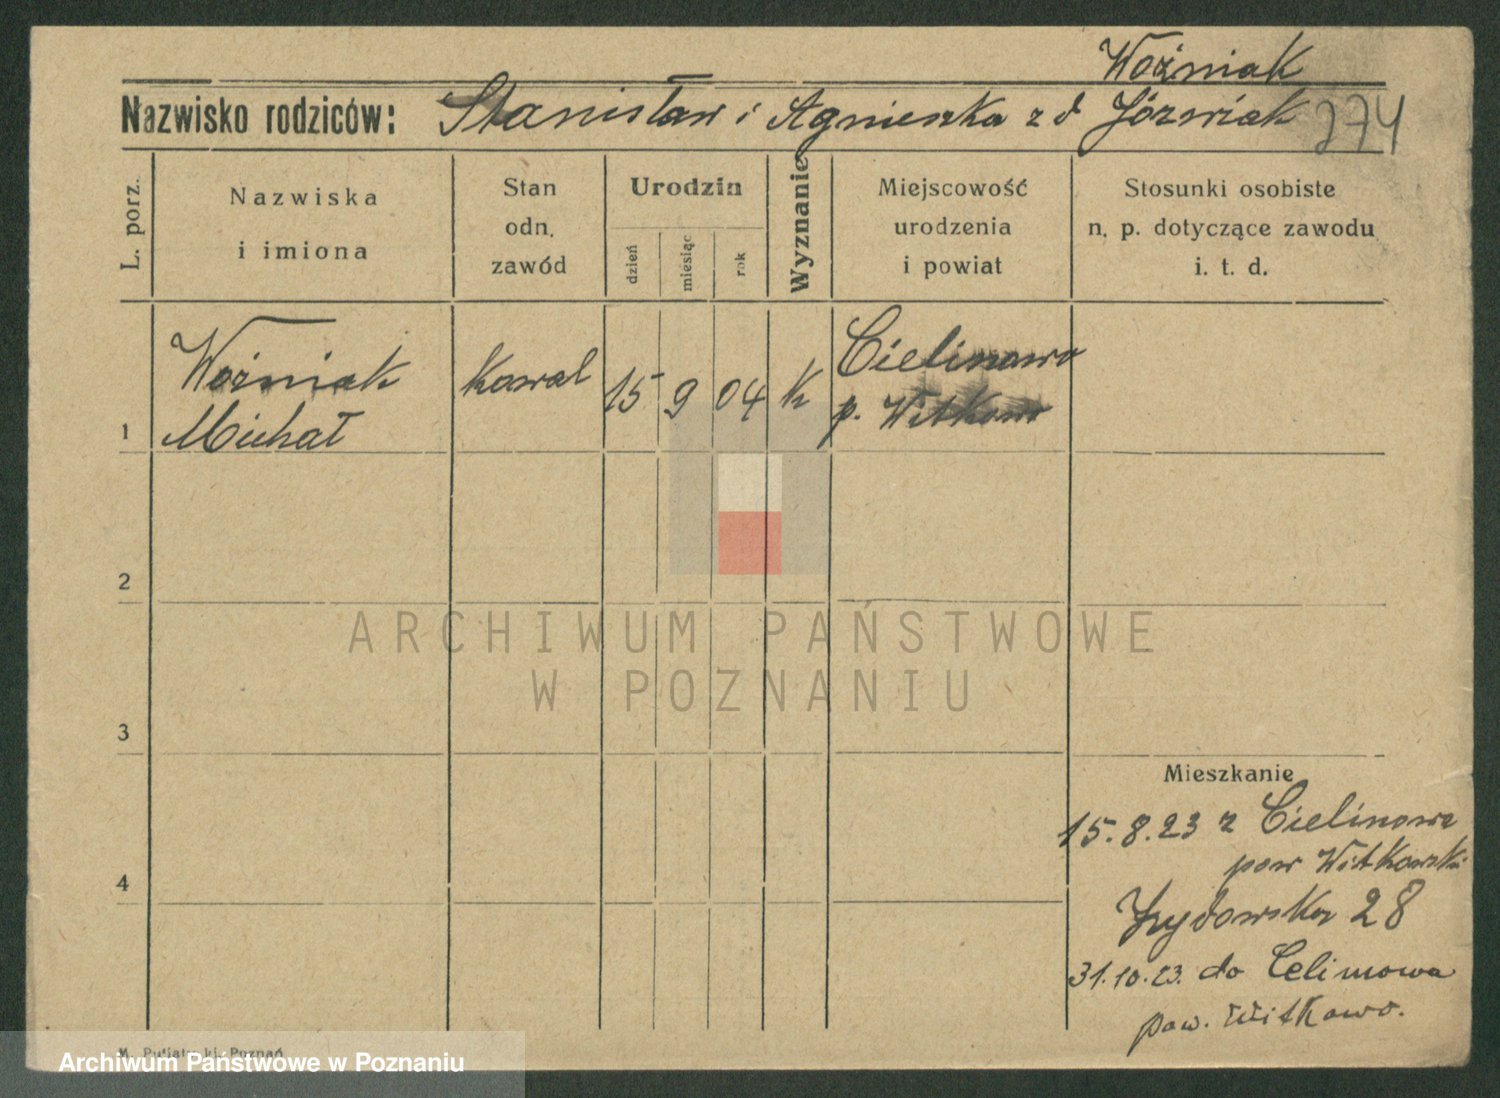 Woźniak
Nazwisko rodziców: Stanisław i Agnieszka z d Józwiak 274
L. porz.
Nazwiska
i imiona
Stan
odn.
zawód
Urodzin
dzień
miesiąc
rok
Wyznanie
Miejscowość
urodzenia
i powiat
Stosunki osobiste
n. p. dotyczące zawodu
i. t. d.
1 Woźniak Michał kowal 15 9 04 k Cielimowo
p. Witkowo
2
ARCHIWUM PAŃSTWOWE
W POZNANIU
3
Mieszkanie
15.8.23 z Cielimowa
pow Witkowski
4
Żydowska 28
31.10.23. do Celimowa
pow. Witkowo.
Poznań
Archiwum Państwowe w Poznaniu